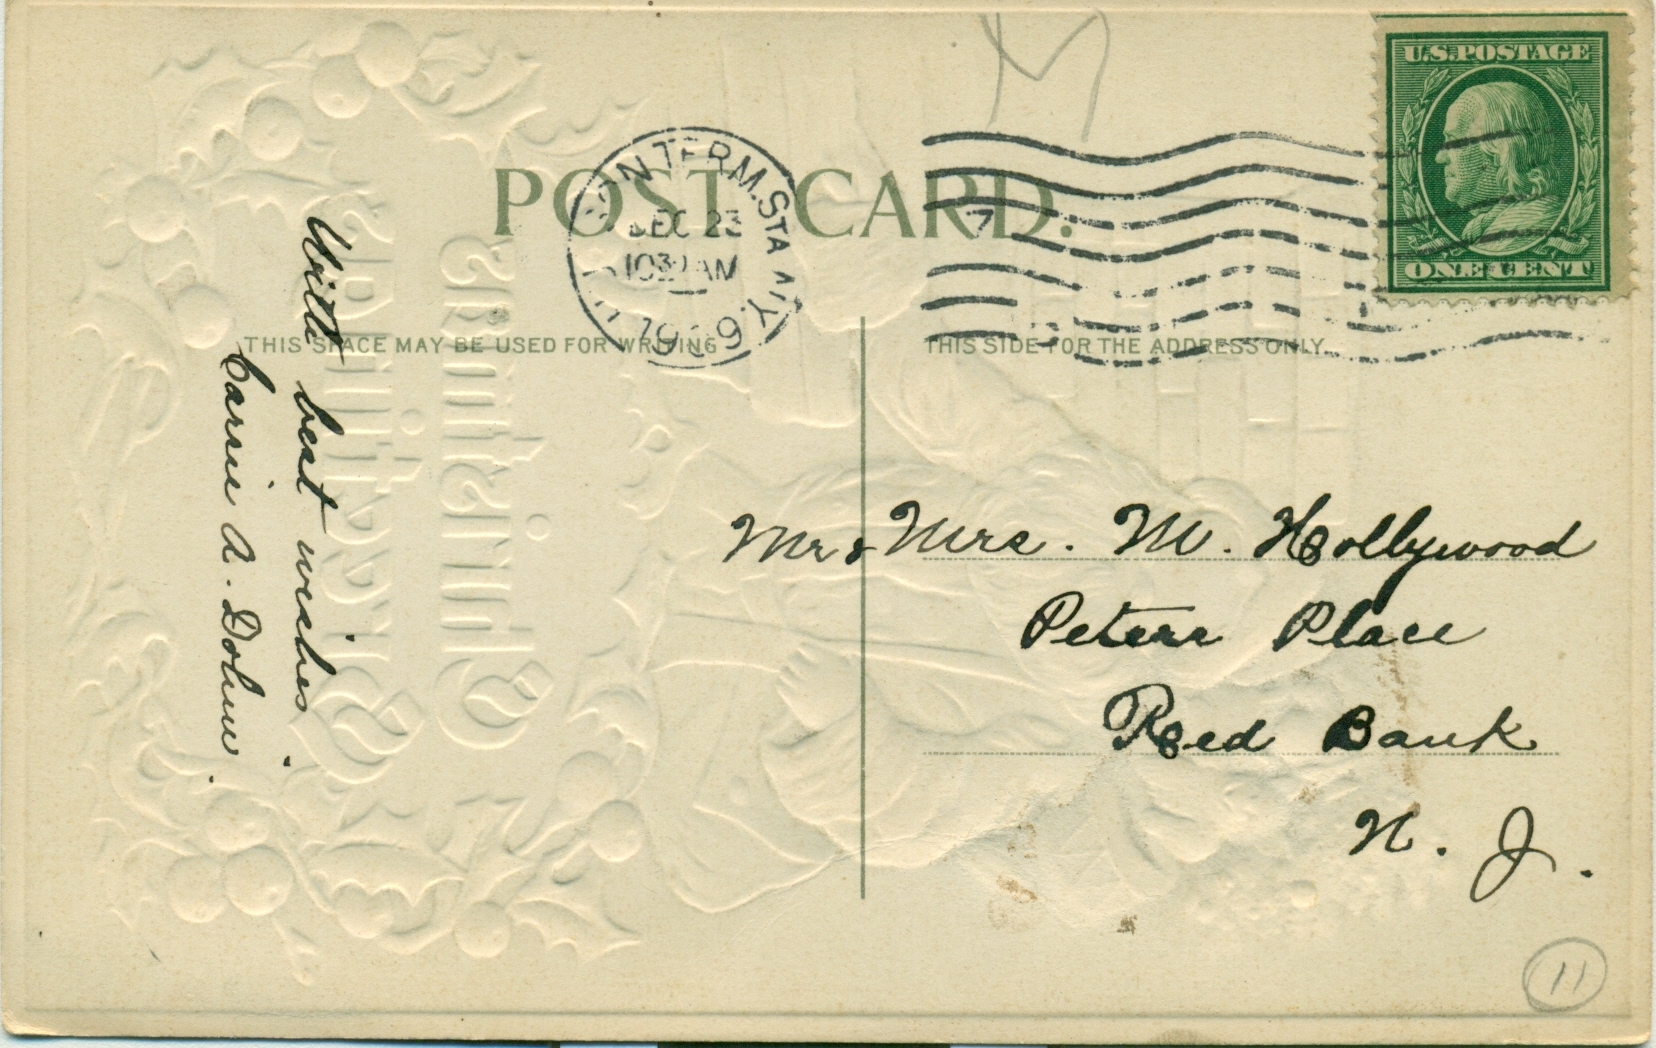 U.S. POSTAGE
ONE CENT
POST CARD.
TERM. STA. N.Y.
DEC 23
10 30 AM
1909
THIS SPACE MAY BE USED FOR WRITING
THIS SIDE FOR THE ADDRESS ONLY.
With best wishes.
Carrie A.
Mr & Mrs. M. Hollywood
Peters Place
Red Bank
N. J.
11
Christmas
Greetings